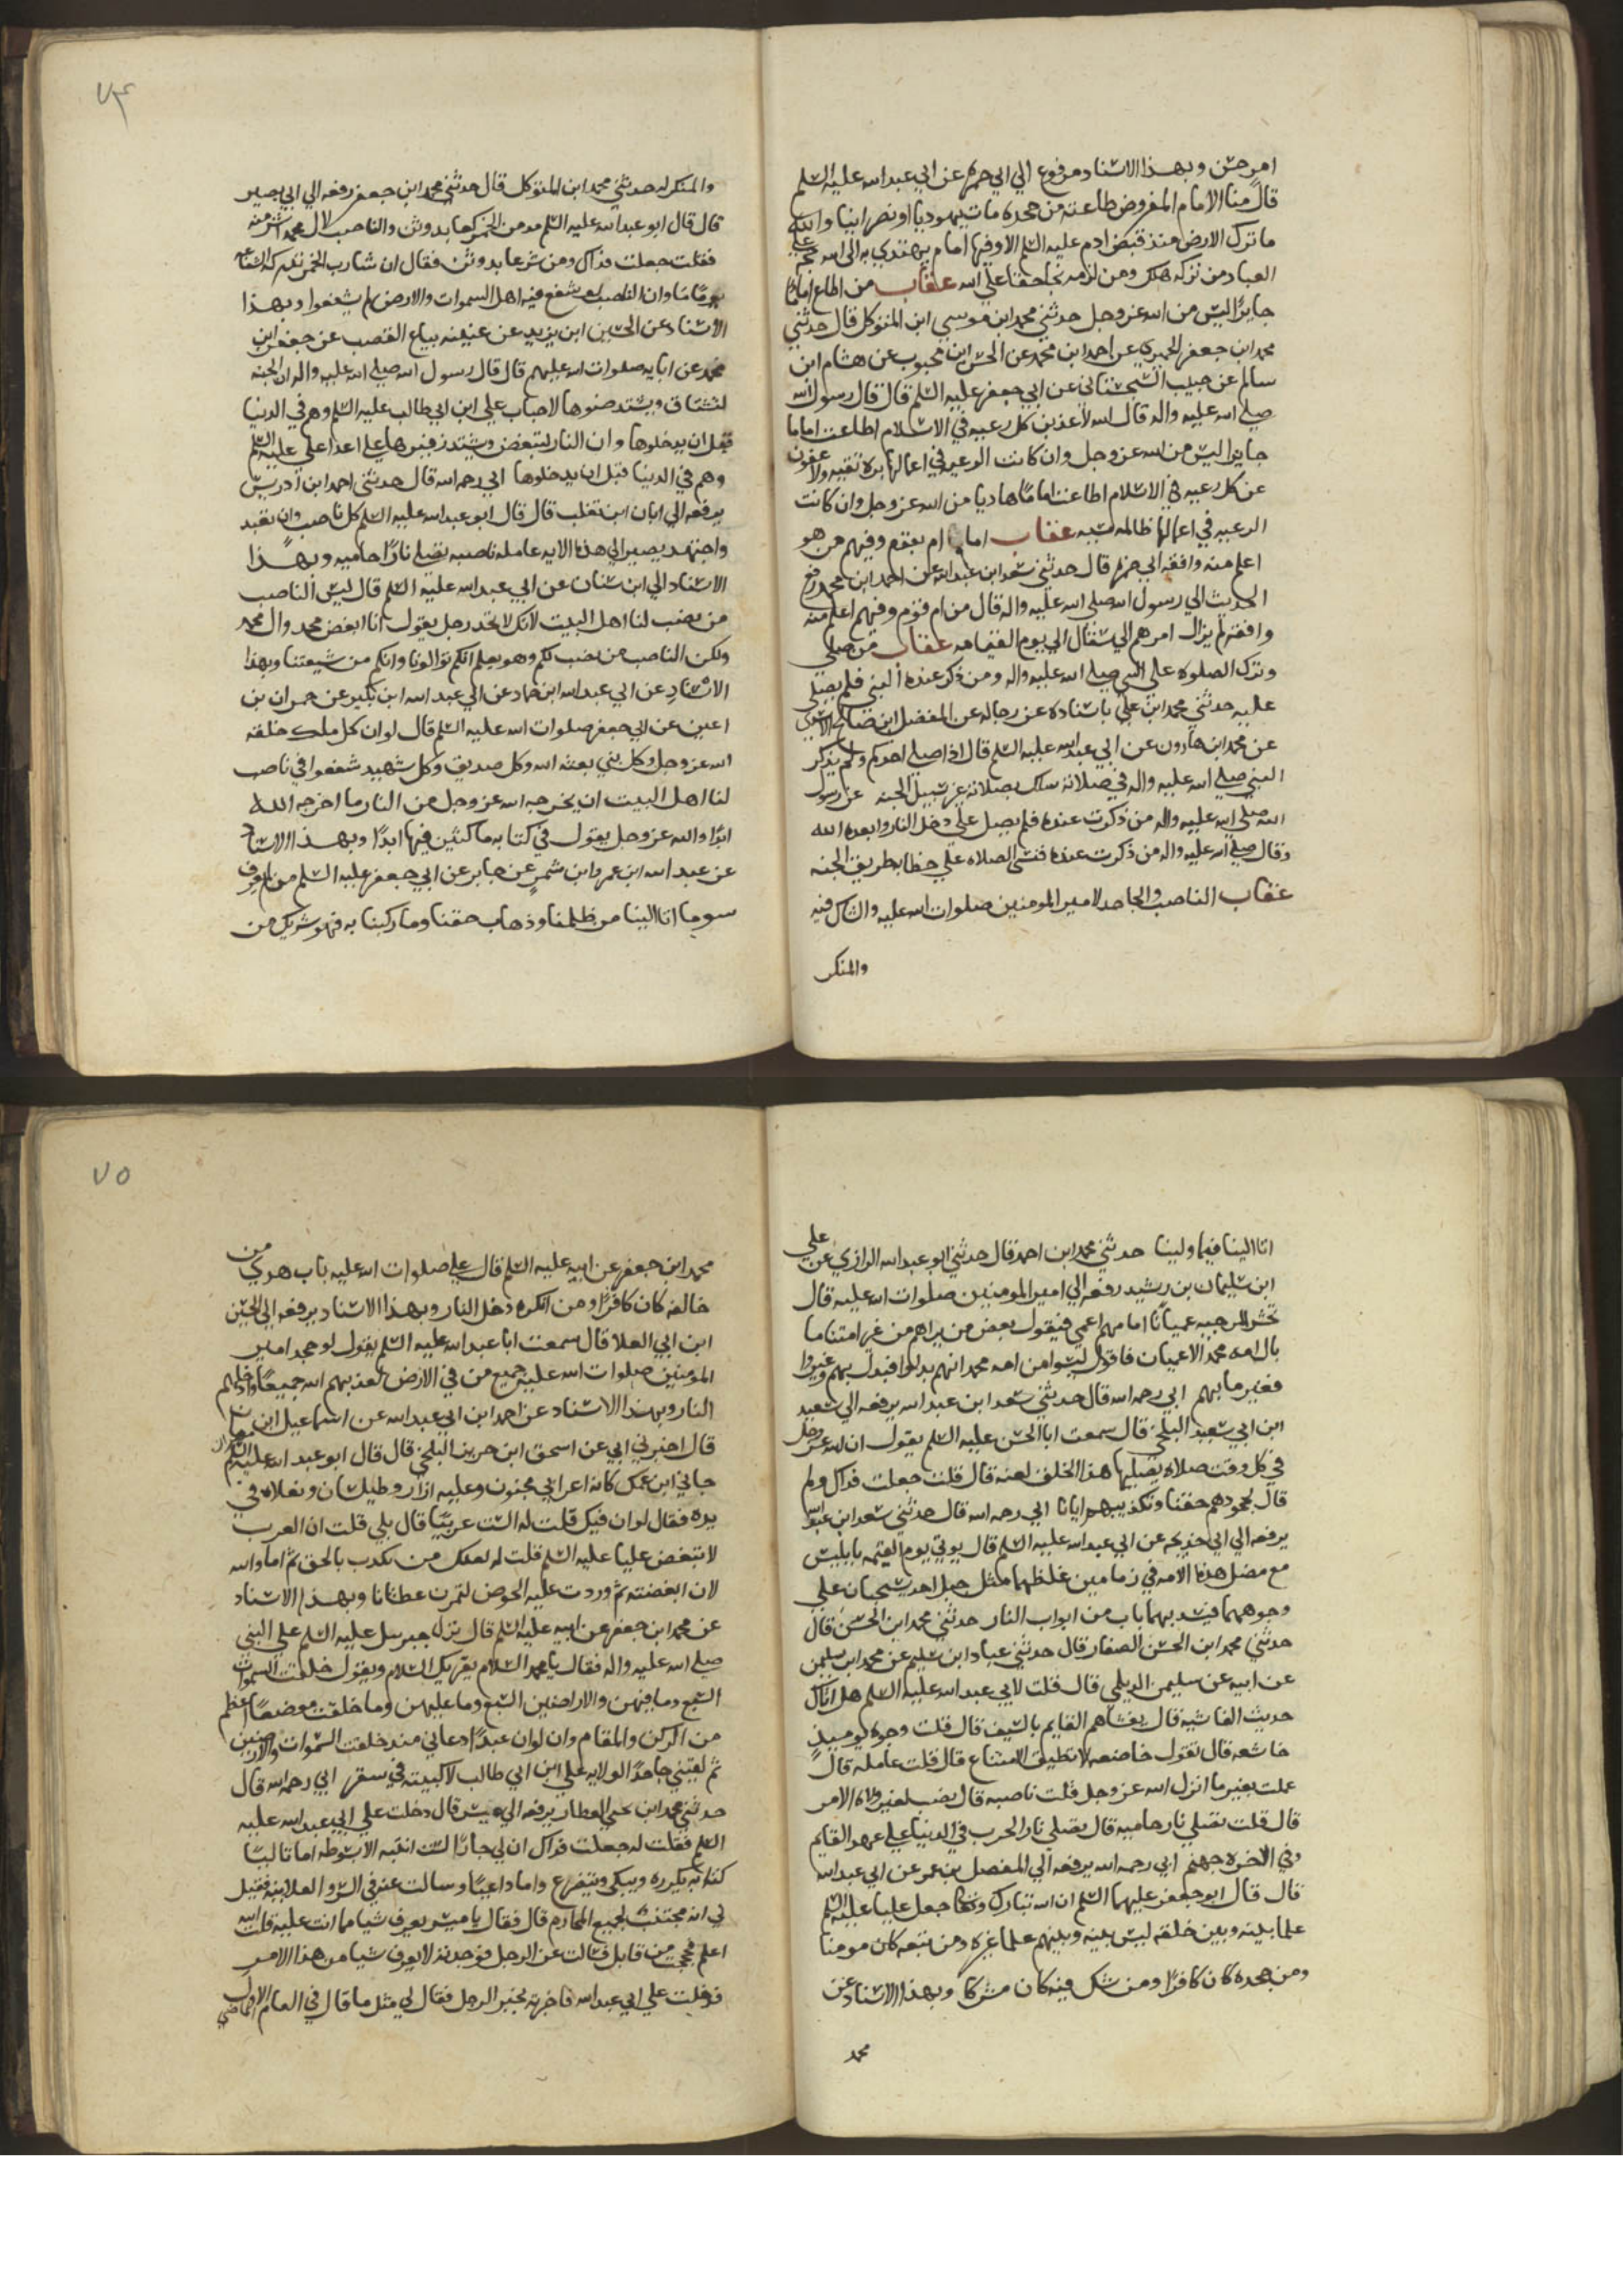 امر حسن وبهذا الاسناد مرفوع الي ابي حمزه عن ابي عبد الله عليه السلم
قال منا الامام المفروض طاعته من جحده مات يهوديا او نصرانيا والله
ما ترك الارض منذ قبض ادم عليه السلم الا وفيها امام يهتدي به الى الله حجه علي
العباد من تركه هلك ومن لزمه نجا حقا علي الله عقاب من اطاع اماما
جايرا ليس من الله عز وجل حدثني محمد ابن موسي ابن المتوكل قال حدثني
محمد ابن جعفر الحميري عن احمد ابن محمد عن الحسن ابن محبوب عن هشام ابن
سالم عن حبيب السجستاني عن ابي جعفر عليه السلم قال قال رسول الله
صلي الله عليه واله قال الله لاعذبن كل رعيه في الاسلام اطاعت اماما
جايرا ليس من الله عز وجل وان كانت الرعيه في اعمالها بره تقيه ولاعفون
عن كل رعيه في الاسلام اطاعت اماما هاديا من الله عز وجل وان كانت
الرعيه في اعمالها ظالمه مسيه عقاب امام ام بقوم وفيهم من هو
اعلم منه وافقه ابي حمزه قال حدثني سعد ابن عبد الله عن احمد ابن محمد رفع
الحديث الي رسول الله صلي الله عليه واله قال من ام قوم وفيهم اعلم منه
وافقه لم يزال امرهم الي سفال الي يوم القيامه عقاب من صلي
وترك الصلوه علي النبي صلي الله عليه واله ومن ذكر عنده النبي فلم يصلي
عليه حدثني محمد ابن علي باسناده عن رجاله عن المفضل ابن صالح الاسدي
عن محمد ابن هارون عن ابي عبد الله عليه السلم قال اذا صلي احدكم ولم يذكر
النبي صلي الله عليه واله في صلاته سلك بصلاته غير سبيل الجنه عن رسول
الله صلي الله عليه واله من ذكرت عنده فلم يصل علي دخل النار وابعده الله
وقال صلي الله عليه واله من ذكرت عنده فنسى الصلاه علي خطا به طريق الجنه
عقاب الناصب والجاحد لامير المومنين صلوات الله عليه والشاك فيه
والمنكر
٧٤
والمنكر له حدثني محمد ابن المتوكل قال حدثني محمد ابن جعفر رفعه الي ابي بصير
قال قال ابو عبد الله عليه السلم مدمن الخمر كعابد وثن والناصب لال محمد اشر منه
فقلت جعلت فداك ومن شر عابد وثن فقال ان شارب الخمر تدركه الشفاعه
يوما ما وان الناصب لو شفع فيه اهل السموات والارض لم يشفعوا وبهذا
الاسناد عن الحسين ابن يزيد عن عيينه بياع القصب عن جعفر ابن
محمد عن ابايه صلوات الله عليهم قال قال رسول الله صلي الله عليه واله ان الجنه
لتشتاق ويشتد ضوها لاحباب علي ابن ابي طالب عليه السلم وهم في الدنيا
قبل ان يدخلوها وان النار لتبغض ويشتد زفيرها علي اعدا علي عليه السلم
وهم في الدنيا قبل ان يدخلوها ابي رحمه الله قال حدثني احمد ابن ادريس
يرفعه الي ابان ابن تغلب قال قال ابو عبد الله عليه السلم كل ناصب وان تعبد
واجتهد يصير الي هذه الايه عامله ناصبه تصلي نارا حاميه وبهذا
الاسناد الي ابن سنان عن ابي عبد الله عليه السلم قال ليس الناصب
من نصب لنا اهل البيت لانك لا تجد رجل يقول انا ابغض محمد وال محمد
ولكن الناصب من نصب لكم وهو يعلم انكم توالونا وانكم من شيعتنا وبهذا
الاسناد عن ابي عبد الله ابن حماد عن ابي عبد الله ابن بكير عن حمران بن
اعين عن ابي جعفر صلوات الله عليه السلم قال لو ان كل ملك خلقه
الله عز وجل وكل نبي بعثه الله وكل صديق وكل شهيد شفعوا في ناصب
لنا اهل البيت ان يخرجه الله عز وجل من النار ما اخرجه الله
ابدا والله عز وجل يقول في كتابه ماكثين فيها ابدا وبهذا الاسناد
عن عبد الله ابن عمر وابن شمر عن جابر عن ابي جعفر عليه السلم من لم يعرف
سو ما اتا الينا من ظلمنا وذهاب حقنا وما ركبنا به فهو شريك من
اتا الينا فيما ولينا حدثني محمد ابن احمد قال حدثني ابو عبد الله الرازي عن علي
ابن سليمان بن رشيد رفعه الي امير المومنين صلوات الله عليه قال
تحشر المرجيه عميانا امامهم اعمي فيقول بعض من يراهم من غير امتنا ما
بال امه محمد الا عميان فاقول ليسوا من امه محمد انهم بدلوا فبدل بهم وغيروا
فغير ما بهم ابي رحمه الله قال حدثني سعد ابن عبد الله يرفعه الي سعيد
ابن ابي سعيد البلخي قال سمعت ابا الحسن عليه السلم يقول ان لله عز وجل
في كل وقت صلاه يصليها هذا الخلق لعنه قال قلت جعلت فداك ولم
قال بجحودهم حقنا وتكذيبهم ايانا ابي رحمه الله قال حدثني سعد ابن عبد الله
يرفعه الي ابي خديجه عن ابي عبد الله عليه السلم قال يوتي يوم القيمه بابليس
مع مضل هذه الامه في زمامين غلظهما مثل جبل احد يسحبان علي
وجوههما فيسد بهما باب من ابواب النار حدثني محمد ابن الحسن قال
حدثني محمد ابن الحسن الصفار قال حدثني عباد ابن سليم عن محمد ابن سليمن
عن ابيه عن سليمن الديلمي قال قلت لابي عبد الله عليه السلم هل اتاك
حديث الغاشيه قال يغشاهم القايم بالسيف قال قلت وجوه يوميذ
خاشعه قال تقول خاضعه لا تطيق الامتناع قال قلت عامله قال
عملت بغير ما انزل الله عز وجل قلت ناصبه قال نصب لغير ولاه الامر
قال قلت تصلي نار حاميه قال تصلي نار الحرب في الدنيا علي عهد القايم
وفي الاخره جهنم ابي رحمه الله يرفعه الي المفضل بن عمر عن ابي عبد الله
قال قال ابو جعفر عليهما السلم ان الله تبارك وتعالي جعل عليا عليه السلم
علما بينه وبين خلقه ليس بينه وبينهم علما غيره ومن تبعه كان مومنا
ومن جحده كان كافرا ومن شك فيه كان مشركا وبهذا الاسناد عن
محمد
٧٥
محمد ابن جعفر عن ابيه عليه السلم قال علي صلوات الله عليه باب هدي من
خالفه كان كافرا ومن انكره دخل النار وبهذا الاسناد يرفعه الي الحسين
ابن ابي العلا قال سمعت ابا عبد الله عليه السلم يقول لو جحد امير
المومنين صلوات الله عليه جميع من في الارض لعذبهم الله جميعا وادخلهم
النار وبهذا الاسناد عن احمد ابن ابي عبد الله عن اسماعيل ابن
قال اخبرني ابي عن اسحق ابن حريز البلخي قال قال ابو عبد الله عليه السلم
جاني ابن عمك كانه اعرابي مجنون وعليه ازار وطيلسان ونعلاه في
يده فقال لو ان فيك قلت له الست عربيا قال بلي قلت ان العرب
لا تبغض عليا عليه السلم قلت له لعلك من تكذب بالحق ثم اما والله
لان ابغضته ثم وردت عليه الحوض لتمرن عطشانا وبهذا الاسناد
عن محمد ابن جعفر عن ابيه عليه السلم قال نزل جبريل عليه السلم علي النبي
صلي الله عليه واله فقال يا محمد السلام يقريك السلام ويقول خلقت السموات
السبع وما فيهن والاراضين السبع وما عليهن وما خلقت موضعا اعظم
من الركن والمقام وان لو ان عبدا دعاني منذ خلقت السموات والارضين
ثم لقيني جاحدا لولايه علي ابن ابي طالب لاكبيته في سقر ابي رحمه الله قال
حدثني محمد ابن يحيي العطار يرفعه الي ميسر قال دخلت علي ابي عبد الله عليه
السلم فقلت له جعلت فداك ان لي جارا لست انتبه الا بصوته اما تاليا
كتابه يكرره ويبكي ويتضرع واما داعيا وسالت عنه في السر والعلانيه فقيل
لي انه مجتنب لجميع المحارم قال فقال يا ميسر يعرف شيا مما انت عليه قلت الله
اعلم فحججت من قابل فسالت عن الرجل فوجدته لا يعرف شيا من هذا الامر
فدخلت علي ابي عبد الله فاخبرته بخبر الرجل فقال لي مثل ما قال في العام الاول الماضي